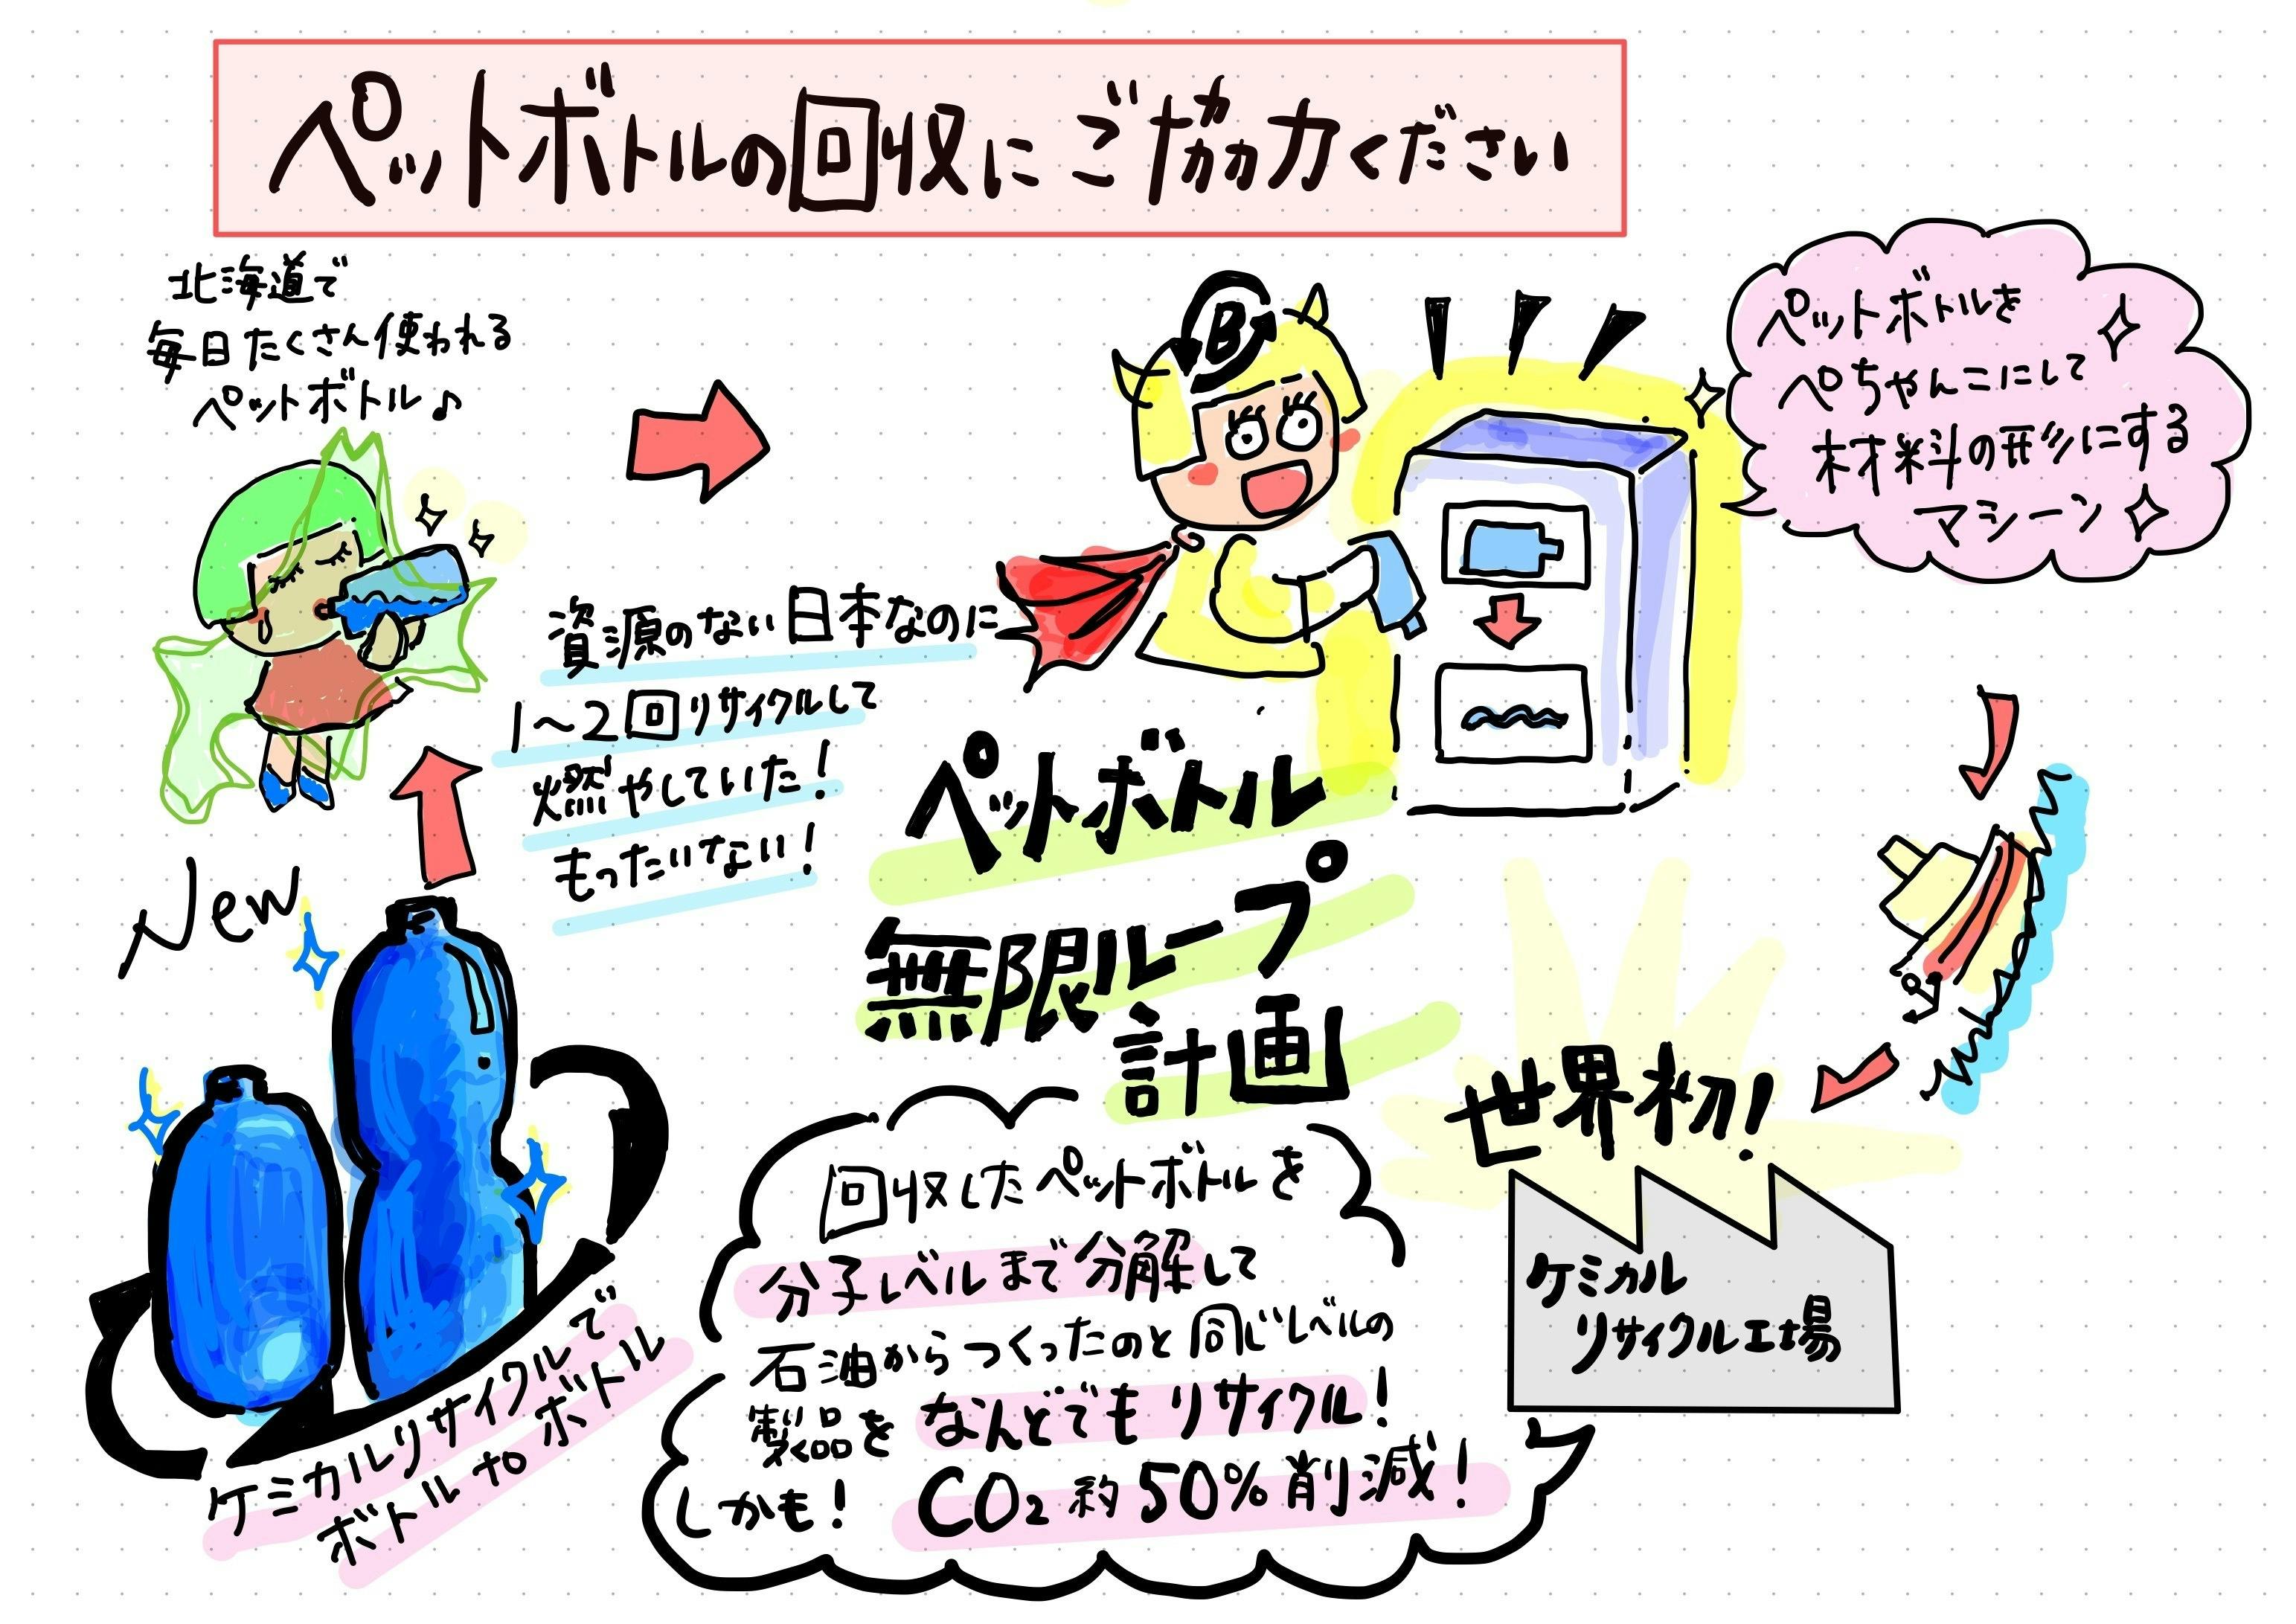 ペットボトルの回収にご協力ください
北海道で
毎日たくさん使われる
ペットボトル♪
B
ペットボトルを
ぺちゃんこにして
材料の形にする
マシーン
資源のない日本なのに
1〜2回リサイクルして
燃やしていた!
もったいない!
ペットボトル
無限ループ
計画
New
世界初!
ケミカル
リサイクル工場
回収したペットボトルを
分子レベルまで分解して
石油からつくったのと同じレベルの
製品をなんどでもリサイクル!
しかも! CO2約50%削減!
ケミカルリサイクルで
ボトルtoボトル